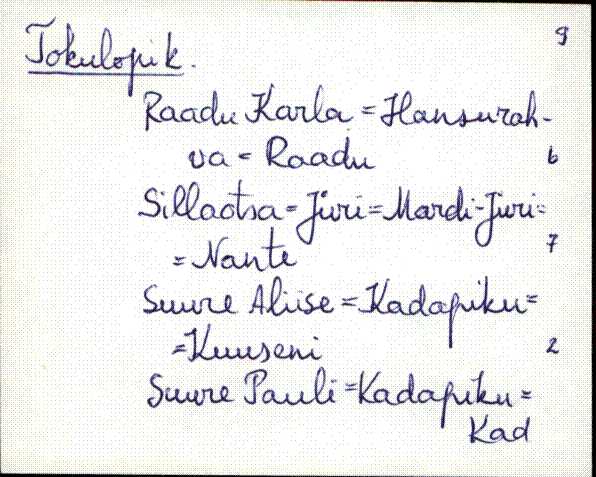 9
Tokulopik.
Raadu Karla = Hansurah-
va = Raadu 6
Sillaotsa = Jüri = Mardi-Jüri =
= Nante 7
Suure Aliise = Kadapiku =
= Kuuseni 2
Suure Pauli = Kadapiku =
Kad